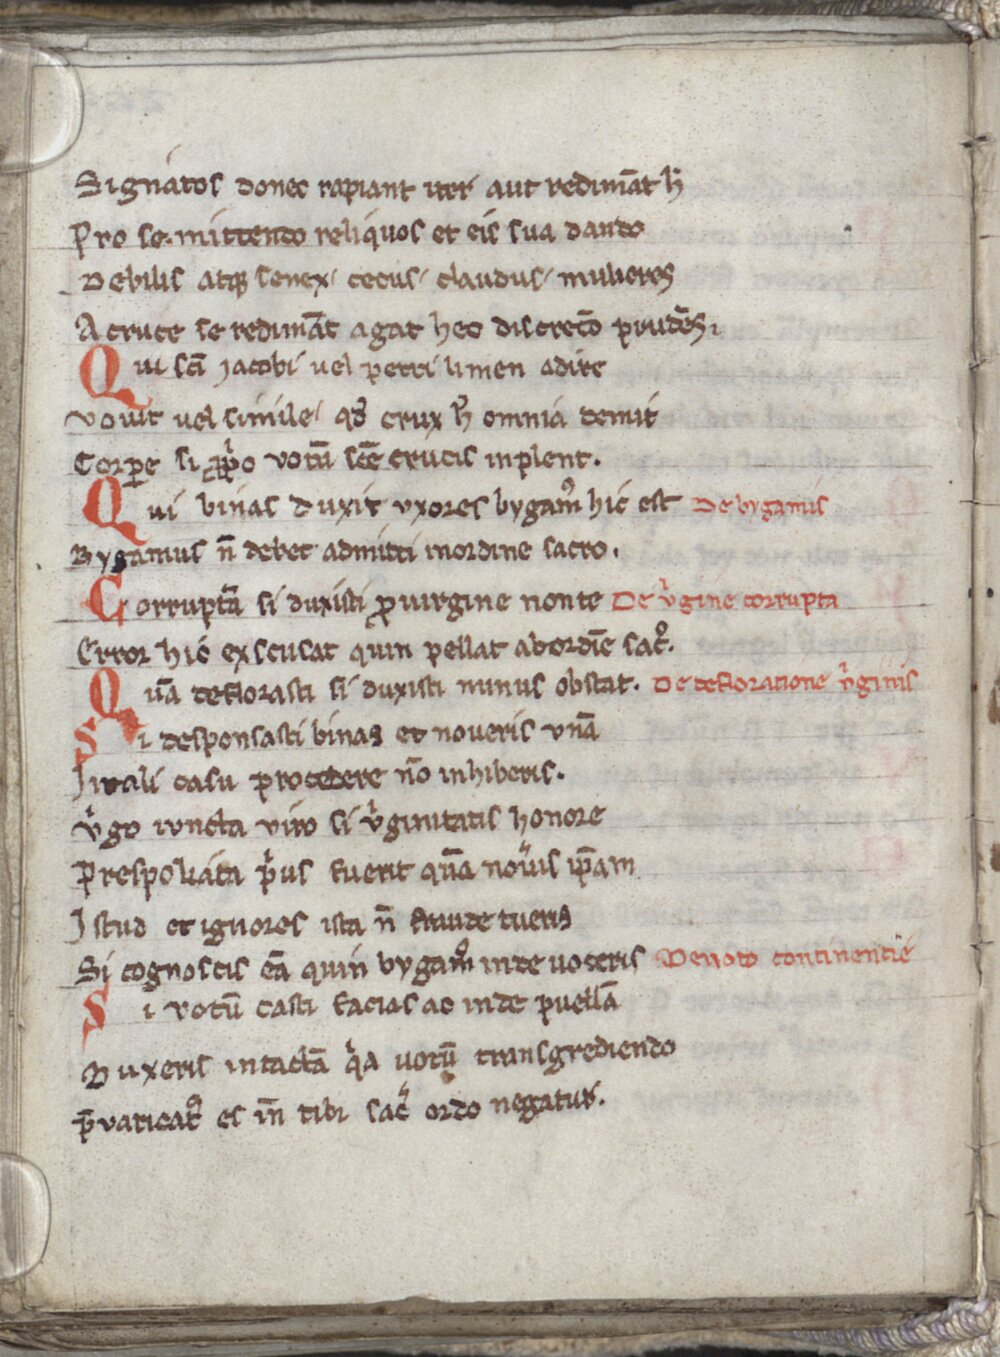 Signatos donec rapiant iter aut redimāt h̄
Pro se mittendo reliquos et eis sua dando
Debilis atqꝫ senex / cecus / claudus / mulieres
A cruce se redimāt agat hec discreto prudēs.
Qui scī Jacobi uel petri limen adire
Vouit uel simile / qd̛ crux h̄ omnia demit
Corpe si ꝓpͥo votū scē crucis inplent.
Qui binas duxit vxores bygamꝰ hic est De bygamis
Bygamus n̄ debet admitti inordine sacro.
Corruptā si duxisti ꝓ uirgine nonte De vͥgine corrupta
Error hic exscusat quin pellat abordīe sacͦ.
Quā deflorasti si duxisti minus obstat. De defloratione vͥginis
Si desponsasti binas et noueris vnā
In tali casu procedere nō inhiberis.
Vͥgo iuncta viro si vͥginitatis honore
Prespoliata pͥus fuerit quā nouͥis ip̄am
Istud et ignores ista n̄ fraude tueris
Si cognoscis eā quin bygamꝰ inde uoceris De uoto continentie
Si votū casti facias ac inde puellā
Duxeris intactā qͥa uotū transgrediendo
p̄uaricatꝰ es īn tibi sacͥ ordo negatur.